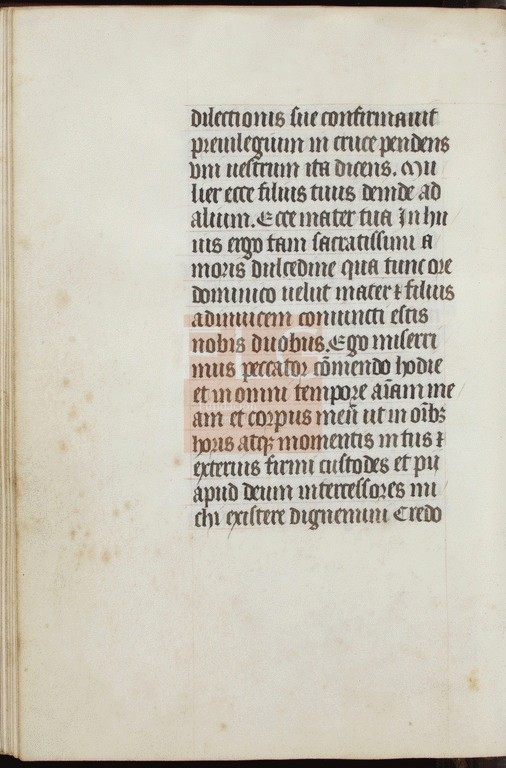 dilectionis sue confirmauit
preuilegium in cruce pendens
vni uestrum ita dicens. Mu
lier ecce filius tuus deinde ad
alium. Ecce mater tua In hu
ius ergo tam sacratissimi a
moris dulcedine qua tunc ore
dominico uelut mater ⁊ filius
adinuicem coniuncti estis
nobis duobus. Ego miserri
mus peccator cōmendo hodie
et in omni tempore aīam me
am et corpus meū ut in oībꝫ
horis atqꝫ momentis intus ⁊
exterius firmi custodes et pij
apud deum intercessores mi
chi existere dignemini Credo